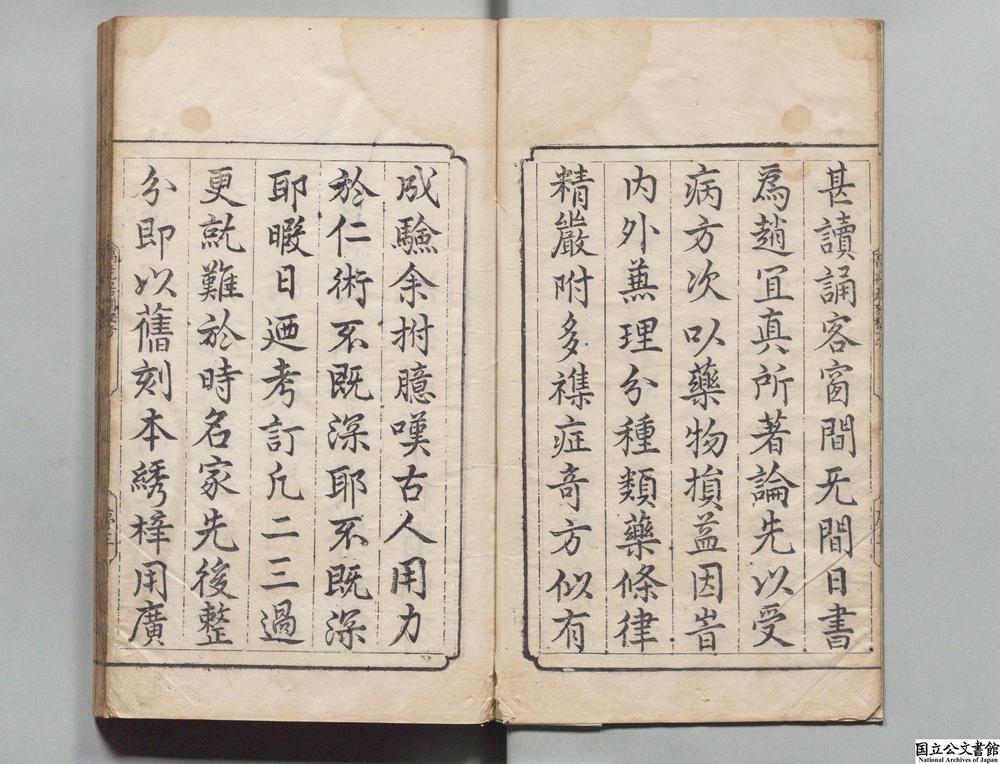 甚讀誦客窗間无間日書
爲趙冝真所著論先以受
病方次以藥物損益因㫖
内外蕪理分種類藥條律
精嚴附多襍症竒方似有
成驗余拊臆嘆古人用力
於仁術不既深耶不既深
耶暇日迺考訂凢二三過
更就難於時名家先後整
分即以舊刻本綉梓用廣
国立公文書館
National Archives of Japan